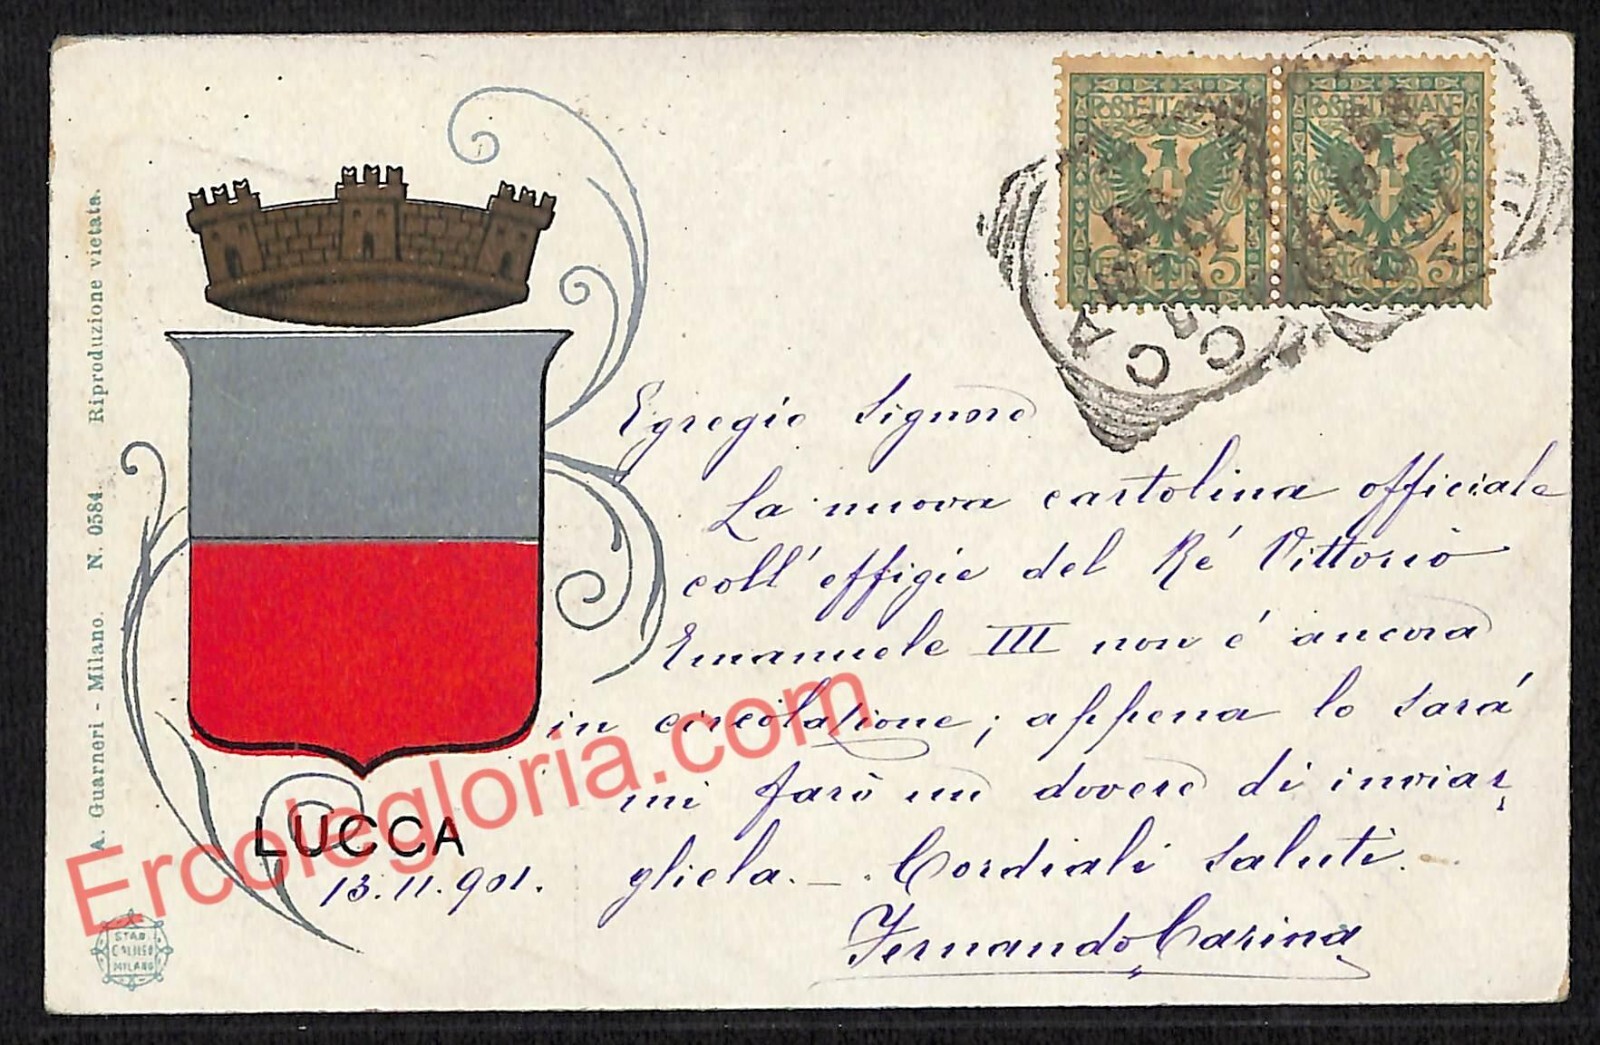 POSTE ITALIANE POSTE ITALIANE
5 5
LUCCA
Egregio Signore
La nuova cartolina officiale
coll' effigie del Ré Vittorio
Emanuele III non é ancora
in circolazione; appena lo sará
mi farò un dovere di inviar-
gliela. — Cordiali saluti.
Fernando Carina
LUCCA
13.11.901.
A. Guarneri - Milano. N. 0584. Riproduzione vietata.
STAB.
CALLIGO
MILANO
Ercolegloria.com